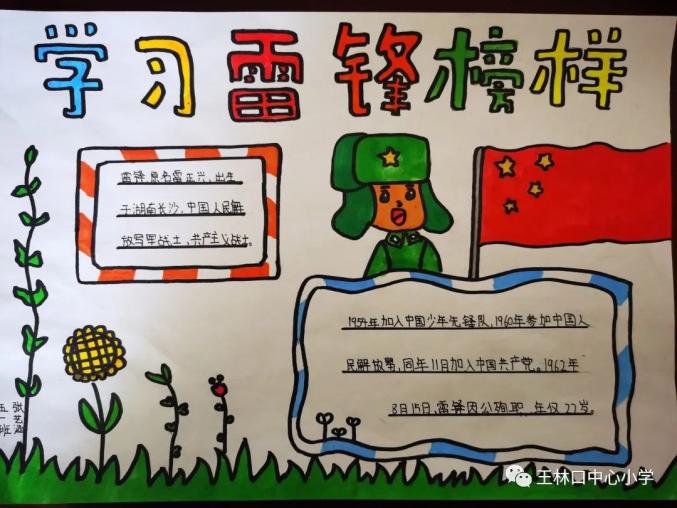 学习雷锋榜样
雷锋,原名雷正兴,出生
于湖南长沙,中国人民解
放军战士,共产主义战士。
1954年加入中国少年先锋队,1960年参加中国人
民解放军,同年11月加入中国共产党。1962年
8月15日,雷锋因公殉职,年仅22岁。
五一班
张艺涵
王林口中心小学